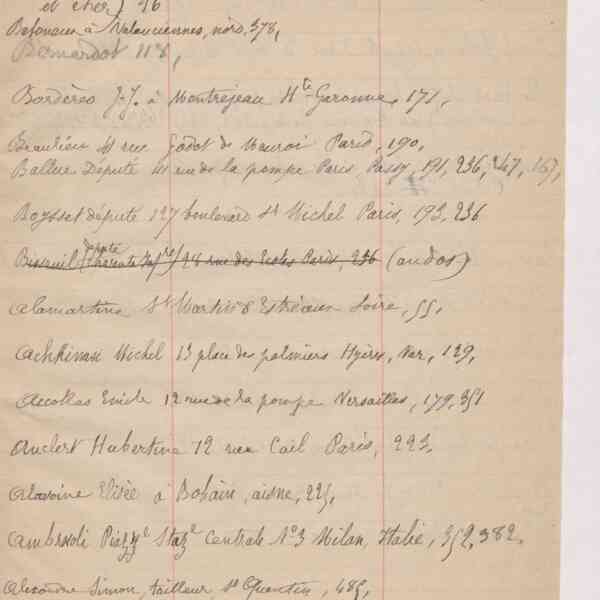 et cher) 26
à Valenciennes, nord, 378,
118,
Bordères J.J. à Montrejeau Hte Garonne, 171,
Beaulieu 41 rue Godot de Mauroi Paris, 190,
Ballue Député 41 rue de la pompe Paris, Passy, 191, 236, 247, 167,
Boysset député 127 boulevard St Michel Paris, 193, 236
Biseuil (dpté Charente Infre) 28 rue des Ecoles Paris, 236 (au dos)
Alamartine St Martin Estréaux Loire, 55,
Achkinasi Michel 13 place des palmiers Hyères, Var, 129,
Accollas Emile 12 rue de la pompe Versailles, 179, 351
Auclert Hubertine 12 rue Cail Paris, 223,
Alavoine Elisée à Bohain, aisne, 225,
Ambrosoli Piazzle Stazle Centrale No 3 Milan, Italie, 352, 382,
Alexandre Simon, tailleur, St Quentin, 485,